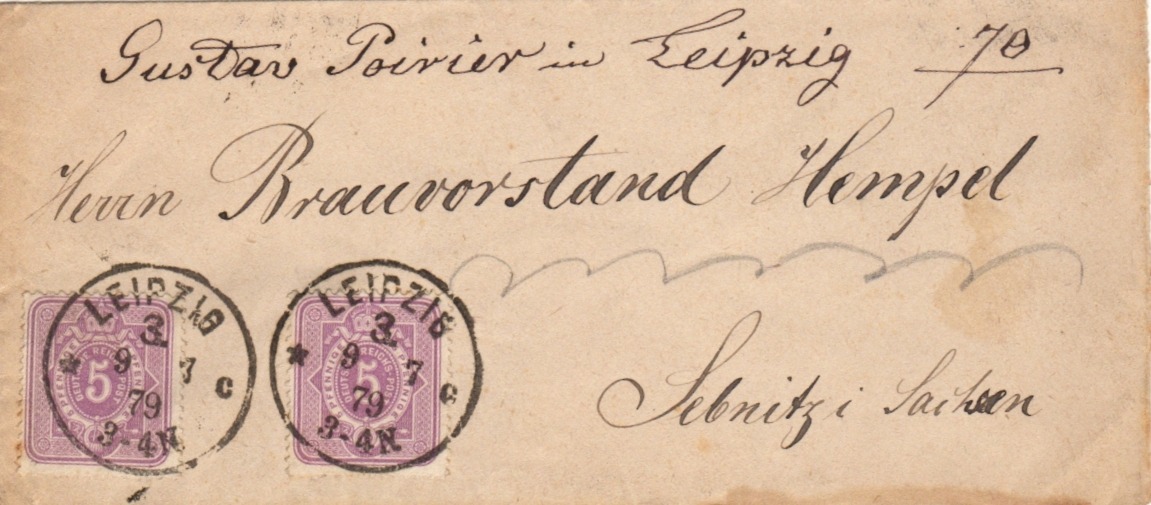 Gustav Poirier in Leipzig 70
Herrn Brauvorstand Hempel
Sebnitz i Sachsen
LEIPZIG
3.
9 7
79
3-4N
* C
5
PFENNIGE PFENNIGE
DEUTSCHE REICHS-POST
LEIPZIG
3.
9 7
79
3-4N
* C
5
PFENNIGE PFENNIGE
DEUTSCHE REICHS-POST